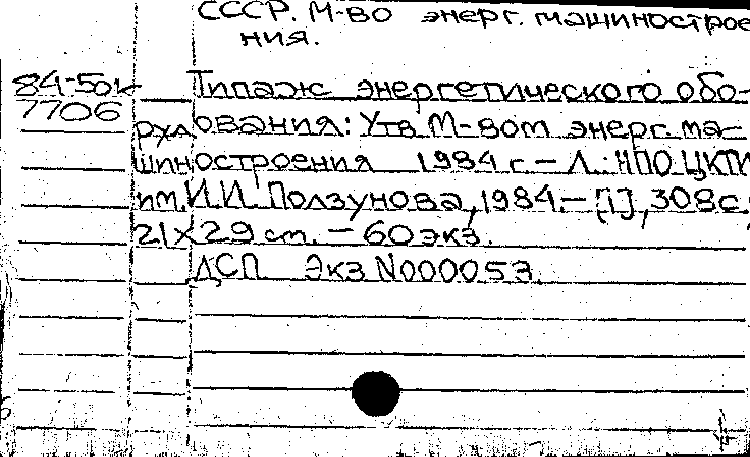 СССР. М-во энерг. машиностроe
ния.
84-50к Типаж энергетического обо-
7706
рудования: Утв М-вом энерг. ма-
шиностроения 1984 г. – Л.: НПО ЦКТИ
им. И.И. Ползунова, 1984. – [1], 308 с.;
21×29 cm. – 60 экз.
ДСП Экз N000053.